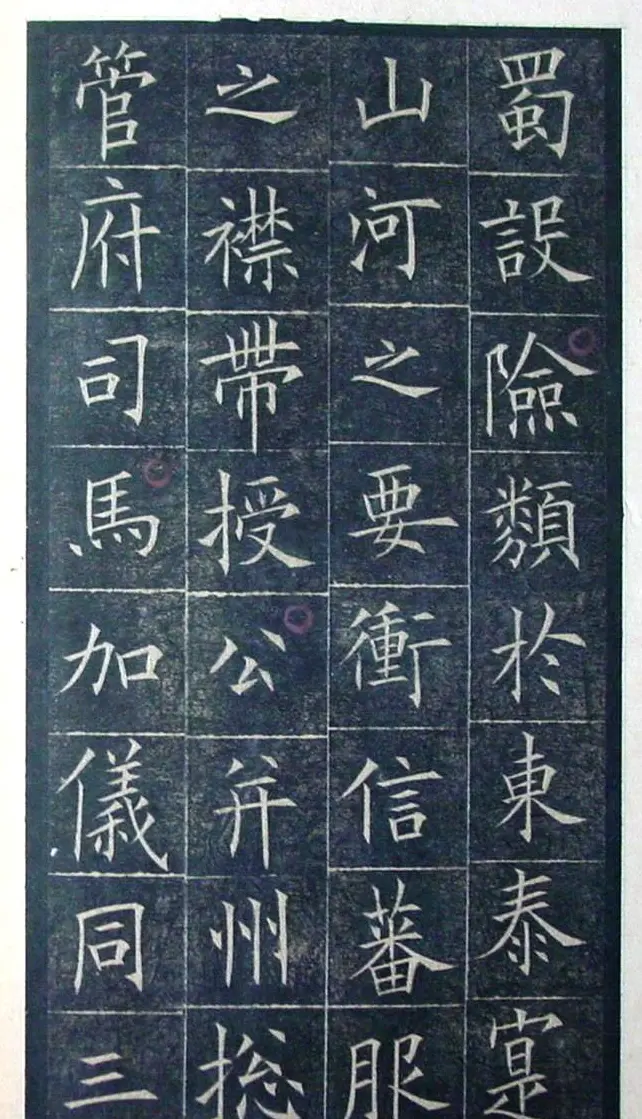 蜀設險類於東泰寔
山河之要衝信蕃服
之襟帶授公并州捴
管府司馬加儀同三